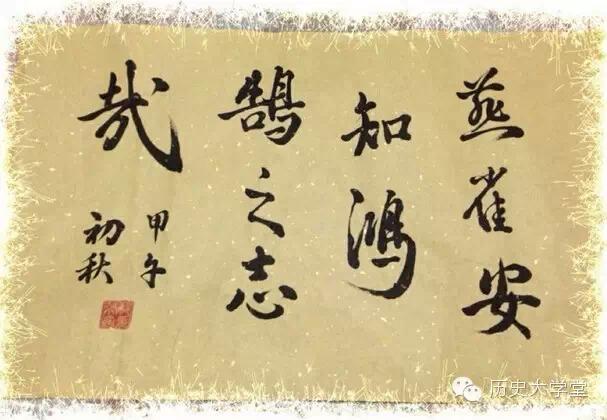 燕雀安
知鸿
鹄之志
哉
甲午
初秋
历史大学堂